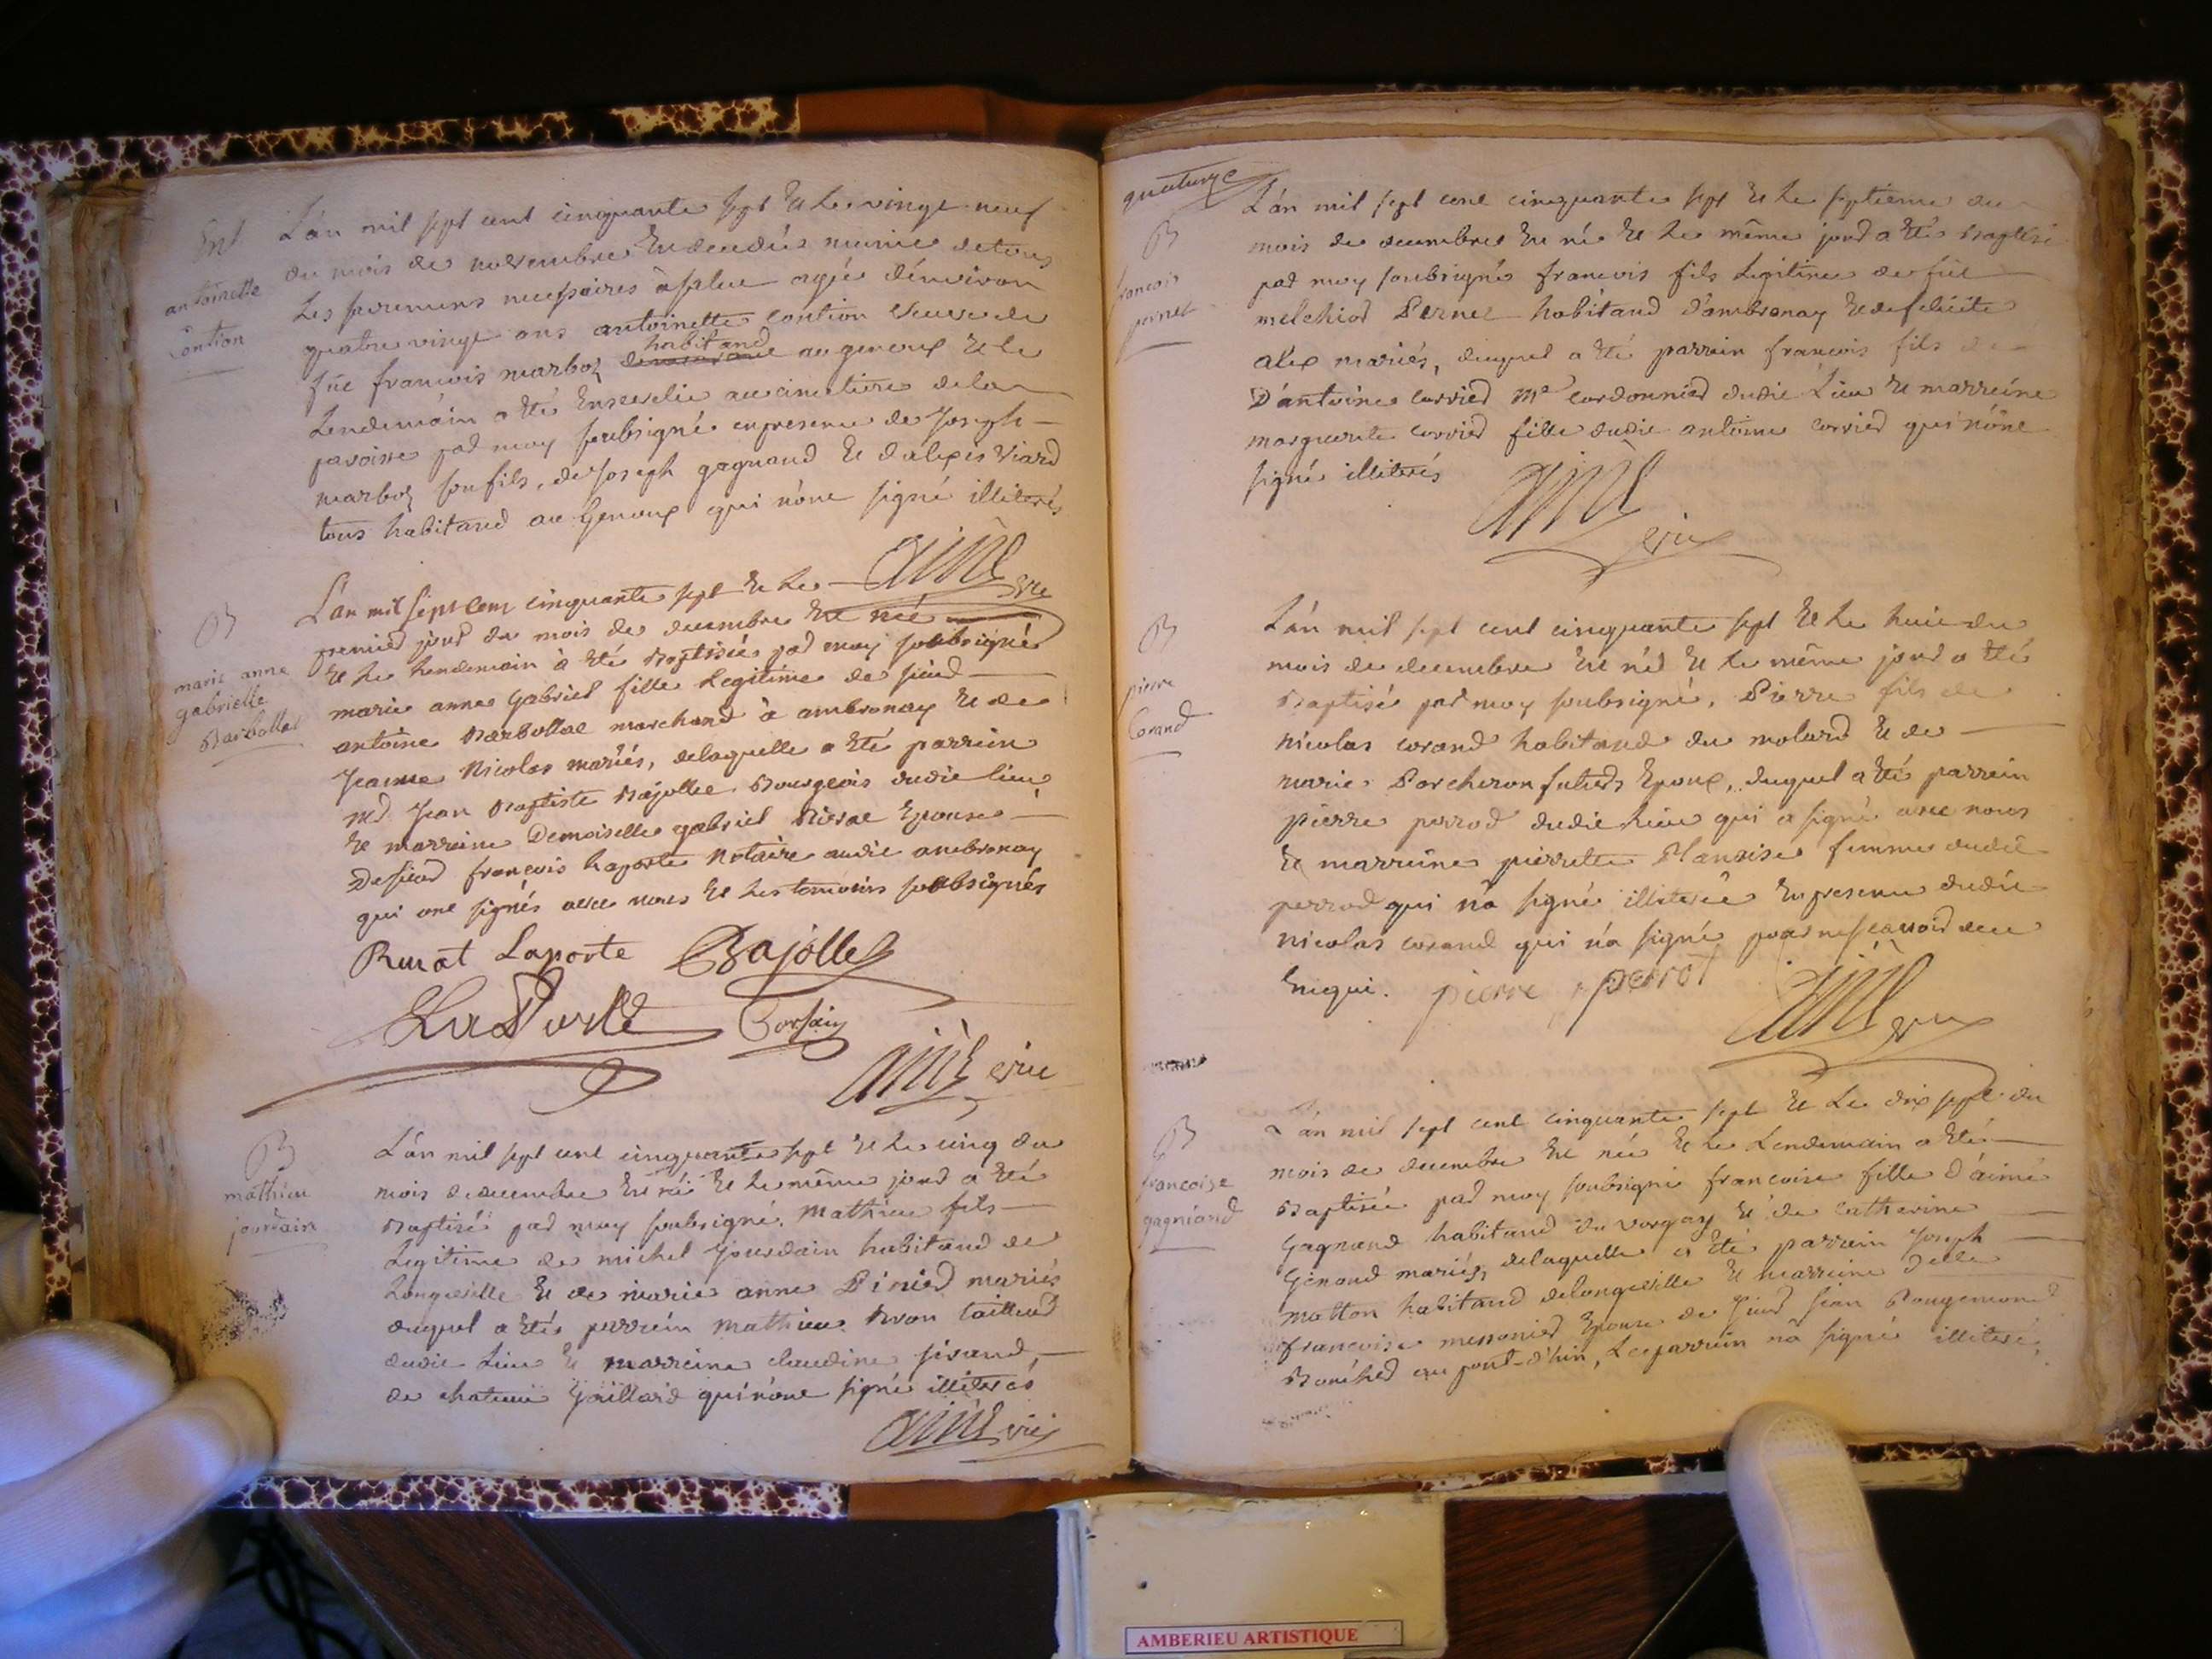 Ent
antoinette
Contion
L'an mil sept cent cinquante sept et le vingt neuf
du mois de novembre est decedée munie de tous
les sacremens necessaires à salue agée d'environ
quatre vingt ans antoinette contion veuve de
habitand
fue francois marboz au genoux et le
Lendemain a été Ensevelie au cimetiere de la
paroisse par moy soubsigné en presence de Joseph
marboz son fils, de Joseph gagnand et d'alexis viard
tous habitand au Genoux qui n'ont signé illiterés
aimé vic
B
marie anne
gabrielle
Barbollat
L'an mil sept cent cinquante sept et le
premier jour du mois de decembre est née
et le lendemain à été Baptisée par moy soubsigné
marie anne Gabriel fille Legitime de sieur
antoine Barbollat marchand à ambronay et de
Jeanne Nicolas mariés, delaquelle a été parrein
md Jean Baptiste Bajollet Bourgeois dudit lieu
et marreine Demoiselle gabriel Epouse
De sieur francois laporte Notaire audit ambronay
qui ont signés avec nous et les temoins soubsignés
Laporte Bajollet
LaPorte
aimé vic
B
mathieu
jourdain
L'an mil sept cent cinquante sept et le cinq du
mois de decembre est né et le même jour a été
Baptisé par moy soubsigné, Mathieu fils
Legitime de michel Jourdain habitand de
Longeville et de marie anne mariés
duquel a étés parrein mathieu tailleur
dudit Lieu et marreine claudine
de chateau Gaillard qui n'ont signé illiterés
aimé vic
quatorze
B
francois
pernet
L'an mil sept cent cinquante sept et le septieme du
mois de decembre est né et le même jour a étés Baptisé
par moy soubsigné francois fils Legitime de fut
melchior Pernet habitand d'ambronay et de felicite
alex mariés, duquel a été parrein francois fils de
D'antoine corrier Me cordonnier dudit Lieu et marreine
marguerite corrier fille dudit antoine corrier qui n'ont
signé illiterés
aimé vic
B
pierre
Corand
L'an mil sept cent cinquante sept et le huit du
mois de decembre est néé et le même jour a été
Baptisé par moy soubsigné, Pierre fils de
nicolas corand habitand du molard et de
marie Porcheron epoux, duquel a été parrein
pierre perrod dudit lieu qui a signé avec nous
et marreine pierrette femme dudit
perrod qui n'a signé illiterée en presence dudit
nicolas corand qui n'a signé pour ne scavoir de ce
Enqui. pierre perrot
aimé vic
B
francoise
gagniand
L'an mil sept cent cinquante sept et le dix sept du
mois de decembre est née et le Lendemain a été
Baptisée par moy soubsigné francoise fille d'aimé
Gagnand habitand du vorgay et de catherine
Genaud mariés, delaquelle a été parrein Joseph
Motton habitand de longeville et marreine Delle
francoise messonier Epouse de sieur Jean Rougemond
au pont-d'hin, Le parrein n'a signé illiteré.
AMBERIEU ARTISTIQUE